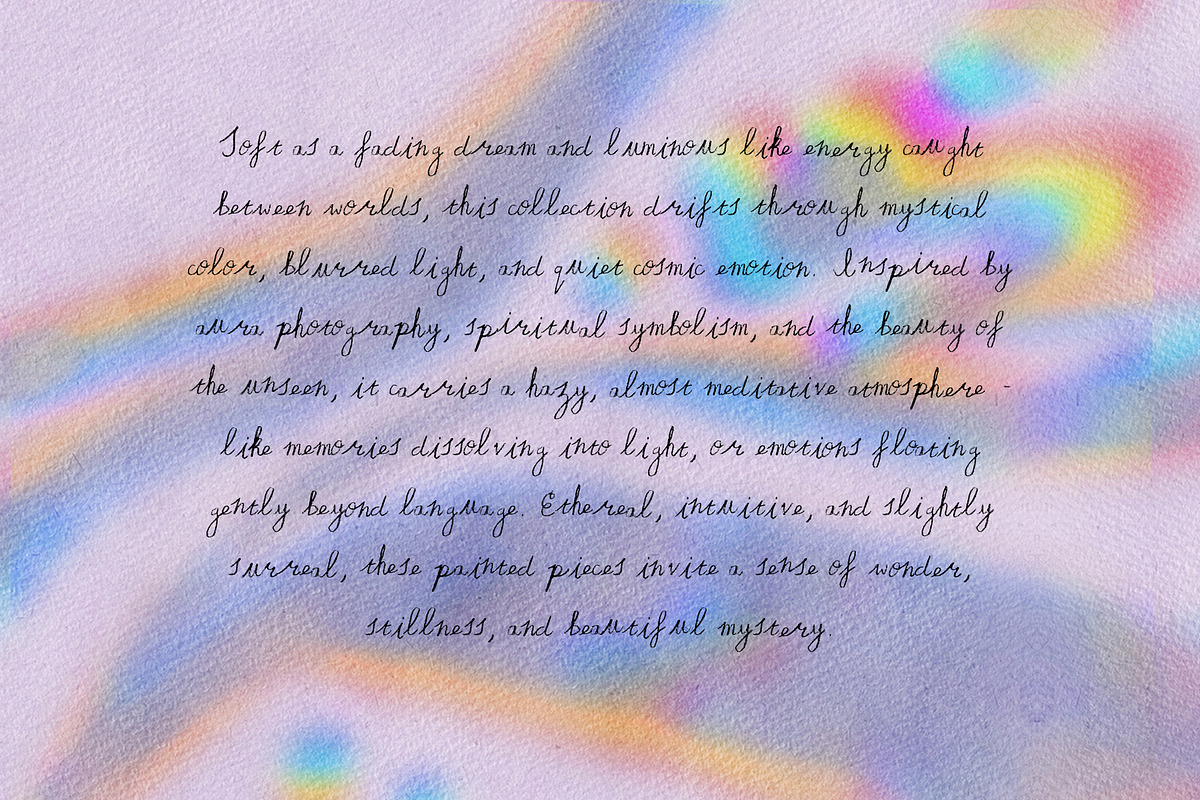 Soft as a fading dream and luminous like energy caught
between worlds, this collection drifts through mystical
color, blurred light, and quiet cosmic emotion. Inspired by
aura photography, spiritual symbolism, and the beauty of
the unseen, it carries a hazy, almost meditative atmosphere -
like memories dissolving into light, or emotions floating
gently beyond language. Ethereal, intuitive, and slightly
surreal, these painted pieces invite a sense of wonder,
stillness, and beautiful mystery.